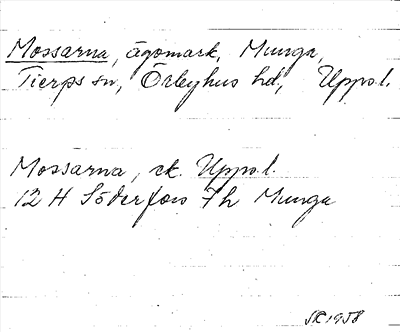 Mossarna, ägomark, Munga,
Tierps sn, Örbyhus hd, Uppsl.
Mossarna, ek. Uppsl.
12 H Söderfors 7h Munga
SR 1958